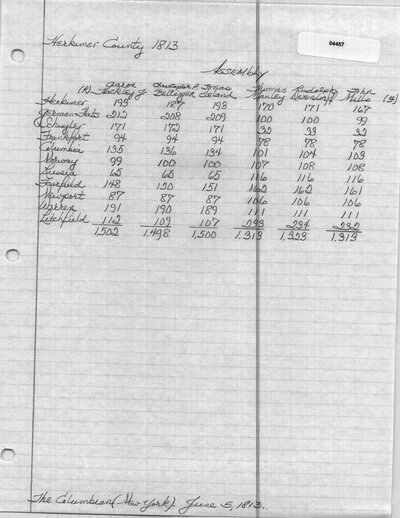 04457
Herkimer County 1813
Assembly
Aaron Christopher P. Jonas Thomas Rudolph John
(R) Hackley Jr Bellinger Cleland Manley Devendorf Mills (F)
Herkimer 195 187 193 170 171 167
German Flats 212 208 209 100 100 99
Schuyler 171 172 171 32 33 32
Frankfort 94 94 94 78 78 78
Columbia 135 136 134 101 104 103
Norway 99 100 100 107 108 108
Russia 65 65 65 116 116 116
Fairfield 148 150 151 162 162 161
Newport 87 87 87 106 106 106
Warren 191 190 189 111 111 111
Litchfield 112 109 107 233 234 232
1,502 1,498 1,500 1,313 1,323 1,313
The Columbian (New York). June 5, 1813.